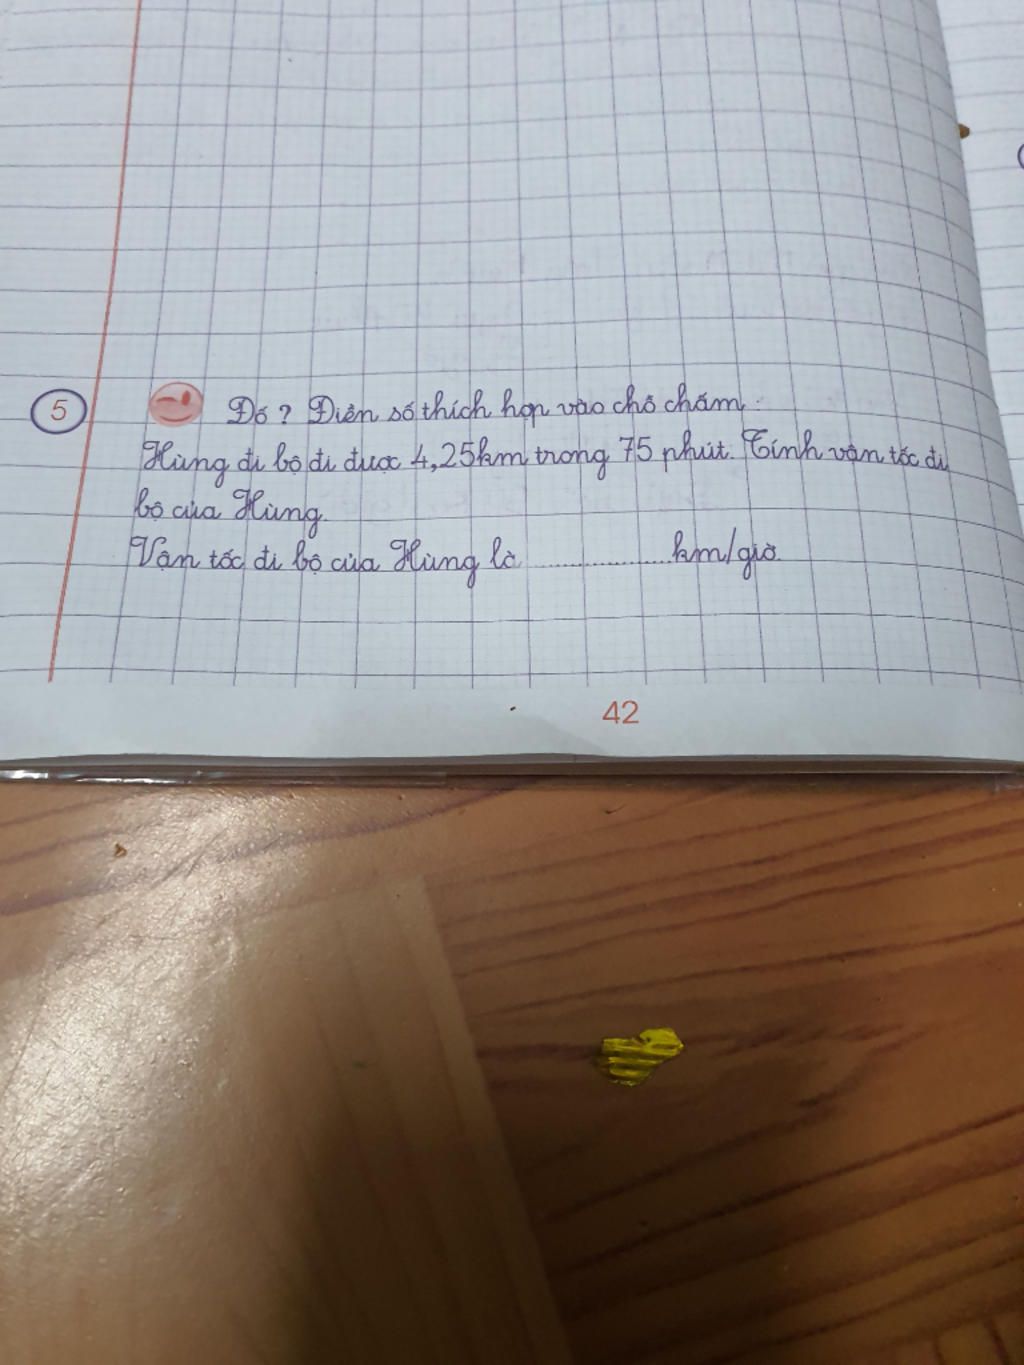 5 Đố? Điền số thích hợp vào chỗ chấm:
Hùng đi bộ đi được 4,25km trong 75 phút. Tính vận tốc đi
bộ của Hùng.
Vận tốc đi bộ của Hùng là ....................km/giờ.
42